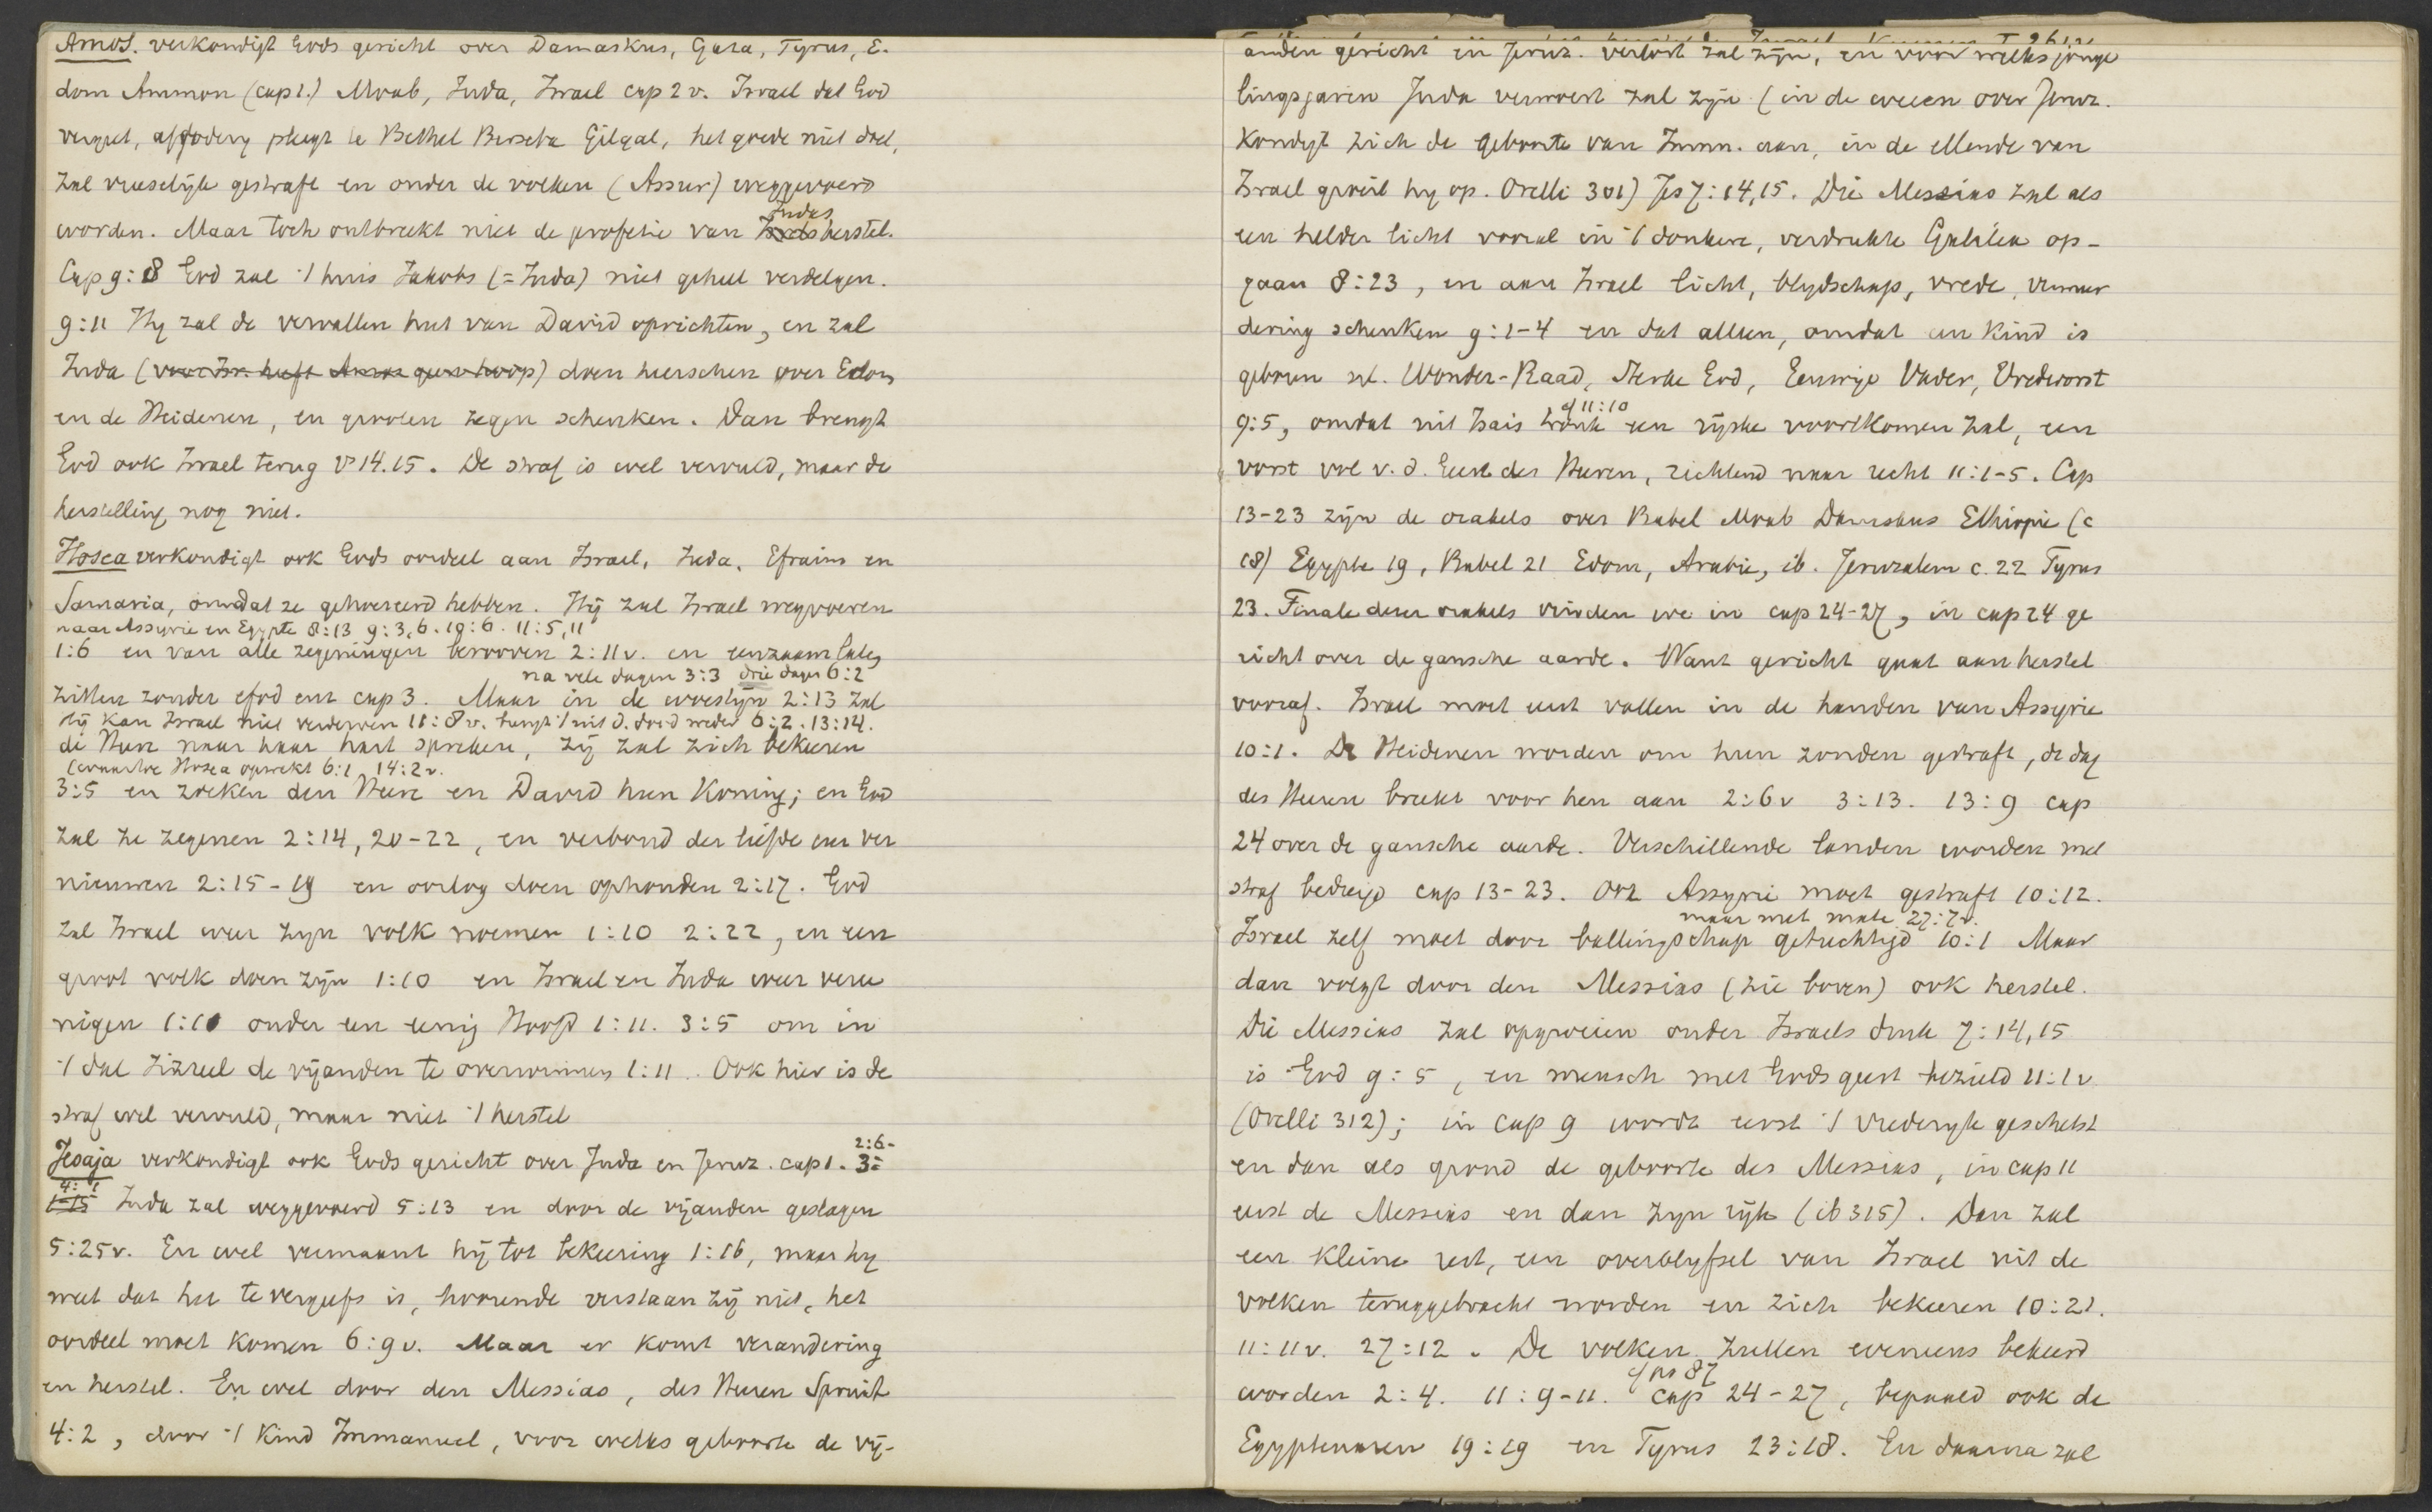 Amos. verkondigt Gods gericht over Damaskus, Gaza, Tyrus, E-
dom Ammon (cap 1.) Moab, Juda, Israel cap 2 v. Israel dat God
vergeet, afgodery pleegt te Bethel Berseba Gilgal, het goede niet doet,
zal vreeselijk gestraft en onder de volken (Assur) weggevoerd
worden. Maar toch ontbreekt niet de profetie van Judas herstel.
Cap 9:8 God zal 't huis Jakobs (= Juda) niet geheel verdelgen.
9:11 Hy zal de vervallen hut van David oprichten, en zal
Juda (voor Isr. heeft Amos geen hoop) doen heerschen over Edom
en de Heidenen, en grooten zegen schenken. Dan brengt
God ook Israel terug vs 14.15. De straf is wel vervuld, maar de
herstelling nog niet.
Hosea verkondigt ook Gods oordeel aan Israel, Juda, Efraim en
Samaria, omdat ze gehoereerd hebben. Hij zal Israel wegvoeren
naar Assyrie en Egypte 8:13 9:3,6. 10:6. 11:5,11
1:6 en van alle zegeningen berooven 2:11v. en eenzaam laten
na vele dagen 3:3 drie dagen 6:2
zitten zonder efod enz cap 3. Maar in de woestijn 2:13 zal
Hij kan Israel niet verderven 11:8v. brengt 't uit d. dood weder 6:2. 13:14.
de Heer naar haar hart spreken, zij zal zich bekeeren
(waartoe Hosea opwekt 6:1, 14:2v.
3:5 en zoeken den Heer en David hun Koning; en God
zal ze zegenen 2:14, 20-22, en verbond der liefde en ver
nieuwen 2:15-19 en oorlog doen ophouden 2:17. God
zal Israel weer zyn volk noemen 1:10 2:22, en een
groot volk doen zijn 1:10 en Israel en Juda weer veree
nigen 1:10 onder een eenig Hoofd 1:11. 3:5 om in
't dal Jizreel de vijanden te overwinnen 1:11. Ook hier is de
straf wel vervuld, maar niet 't herstel
Jesaja verkondigt ook Gods gericht over Juda en Jeruz. cap 1. 2:6-
4:1 Juda zal weggevoerd 5:13 en door de vijanden geslagen
5:25v. En wel vermaant hij tot bekeering 1:16, maar hy
weet dat het te vergeefs is, hoorende verstaan zij niet, het
oordeel moet komen 6:9v. Maar er komt verandering
en herstel. En wel door den Messias, des Heeren Spruit
4:2, door 't Kind Immanuel, voor welks geboorte de vij-
anden gericht en Jeruz. verlost zal zijn, en voor welks jonge
lingsjaren Juda verwoest zal zijn (in de weeen over Jeruz.
Kondigt zich de geboorte van Imm. aan, in de ellende van
Israel groeit hy op. Orelli 301) Jes 7:14,15. Die Messias zal als
een helder licht vooral in 't donkere, verdrukte Galilea op-
gaan 8:23, en aan Israel licht, blydschap, vrede, vermeer
dering schenken 9:1-4 en dat alleen, omdat een Kind is
geboren nl. Wonder-Raad, Sterke God, Eeuwige Vader, Vredevorst
cf 11:10
9:5, omdat uit Isais tronk een rijske voortkomen zal, een
vorst vol v. d. Geest des Heeren, richtend naar recht 11:1-5. Cap
13-23 zijn de orakels over Babel Moab Damaskus Ethiopie (c
18) Egypte 19, Babel 21 Edom, Arabie, ib. Jeruzalem c. 22 Tyrus
23. Finale dezer orakels vinden we in cap 24-27, in cap 24 ge
richt over de gansche aarde. Want gericht gaat aan herstel
vooraf. Israel moet eerst vallen in de handen van Assyrie
10:1. De Heidenen worden om hun zonden gestraft, de dag
des Heeren breekt voor hen aan 2:6v 3:13. 13:9 cap
24 over de gansche aarde. Verschillende landen worden met
straf bedreigd cap 13-23. Ook Assyrie moet gestraft 10:12.
maar met mate 27:7v.
Israel zelf moet door ballingschap getuchtigd 10:1 Maar
dan volgt door den Messias (zie boven) ook herstel.
Die Messias zal opgroeien onder Israels druk 7:14,15
is God 9:5, en mensch met Gods geest bezield 11:1v
(Orelli 312); in cap 9 wordt eerst 't Vrederyk geschetst
en dan als grond de geboorte des Messias, in cap 11
eerst de Messias en dan zyn rijk (ib 315). Dan zal
een kleine rest, een overblyfsel van Israel uit de
volken teruggebracht worden en zich bekeeren 10:21.
11:11v. 27:12. De volken zullen eveneens bekeerd
cf ps 87
worden 2:4. 11:9-11. cap 24-27, bepaald ook de
Egyptenaren 19:19 en Tyrus 23:18. En daarna zal